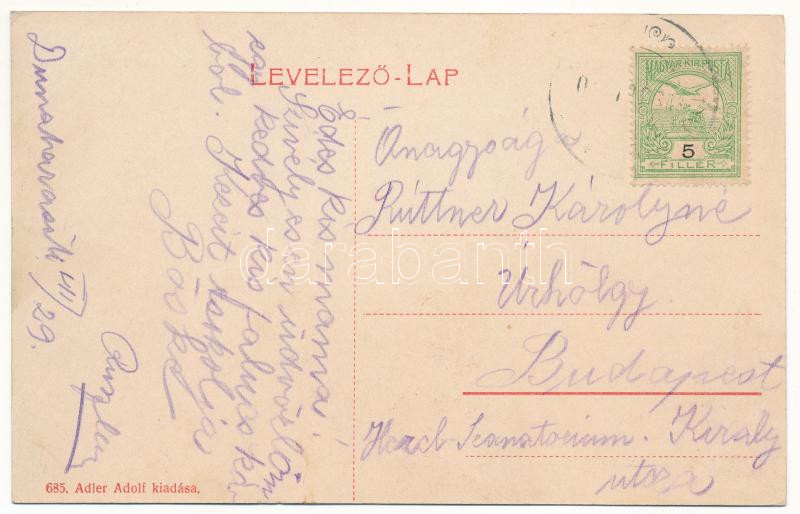 LEVELEZŐ-LAP
MAGYAR KIR. POSTA
5
FILLÉR
Dunaharaszti VII/29.
Édes kis mama!
Szívélyesen üdvözlöm
egy kedves kis falucská-
ból. Kezeit csókolja
Böske
Őnagysága
Rüttner Károlyné
Úrhölgy
Budapest
Herczl-Szanatorium. Király
utcza
685. Adler Adolf kiadása.
darabanth